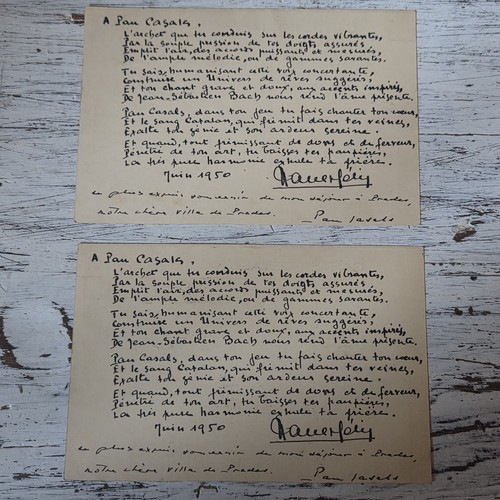 A Pau Casals,
L'archet que tu conduis sur les cordes vibrantes,
Par la souple pression de tes doigts assurés
Emplit l'air, des accords puissants et mesurés,
De l'ample mélodie, ou de gammes savantes.
Tu sais, humanisant cette voix concertante,
Construire un Univers de rêves suggérés
Et ton chant grave et doux, aux accents inspirés,
De Jean-Sébastien Bach nous rend l'âme présente.
Pau Casals, dans ton jeu tu fais chanter ton cœur,
Et le sang Catalan, qui frémit dans tes veines,
Exalte ton génie et son ardeur sereine.
Et quand, tout frémissant de dons et de ferveur,
Pénétré de ton art, tu baisses tes paupières,
La très pure harmonie exhale ta prière.
Juin 1950
souvenir de mon séjour à Prades,
notre chère ville de Prades.
Pau Casals
A Pau Casals,
L'archet que tu conduis sur les cordes vibrantes,
Par la souple pression de tes doigts assurés
Emplit l'air, des accords puissants et mesurés,
De l'ample mélodie, ou de gammes savantes.
Tu sais, humanisant cette voix concertante,
Construire un Univers de rêves suggérés
Et ton chant grave et doux, aux accents inspirés,
De Jean-Sébastien Bach nous rend l'âme présente.
Pau Casals, dans ton jeu tu fais chanter ton cœur,
Et le sang Catalan, qui frémit dans tes veines,
Exalte ton génie et son ardeur sereine.
Et quand, tout frémissant de dons et de ferveur,
Pénétré de ton art, tu baisses tes paupières,
La très pure harmonie exhale ta prière.
Juin 1950
souvenir de mon séjour à Prades,
notre chère ville de Prades.
Pau Casals